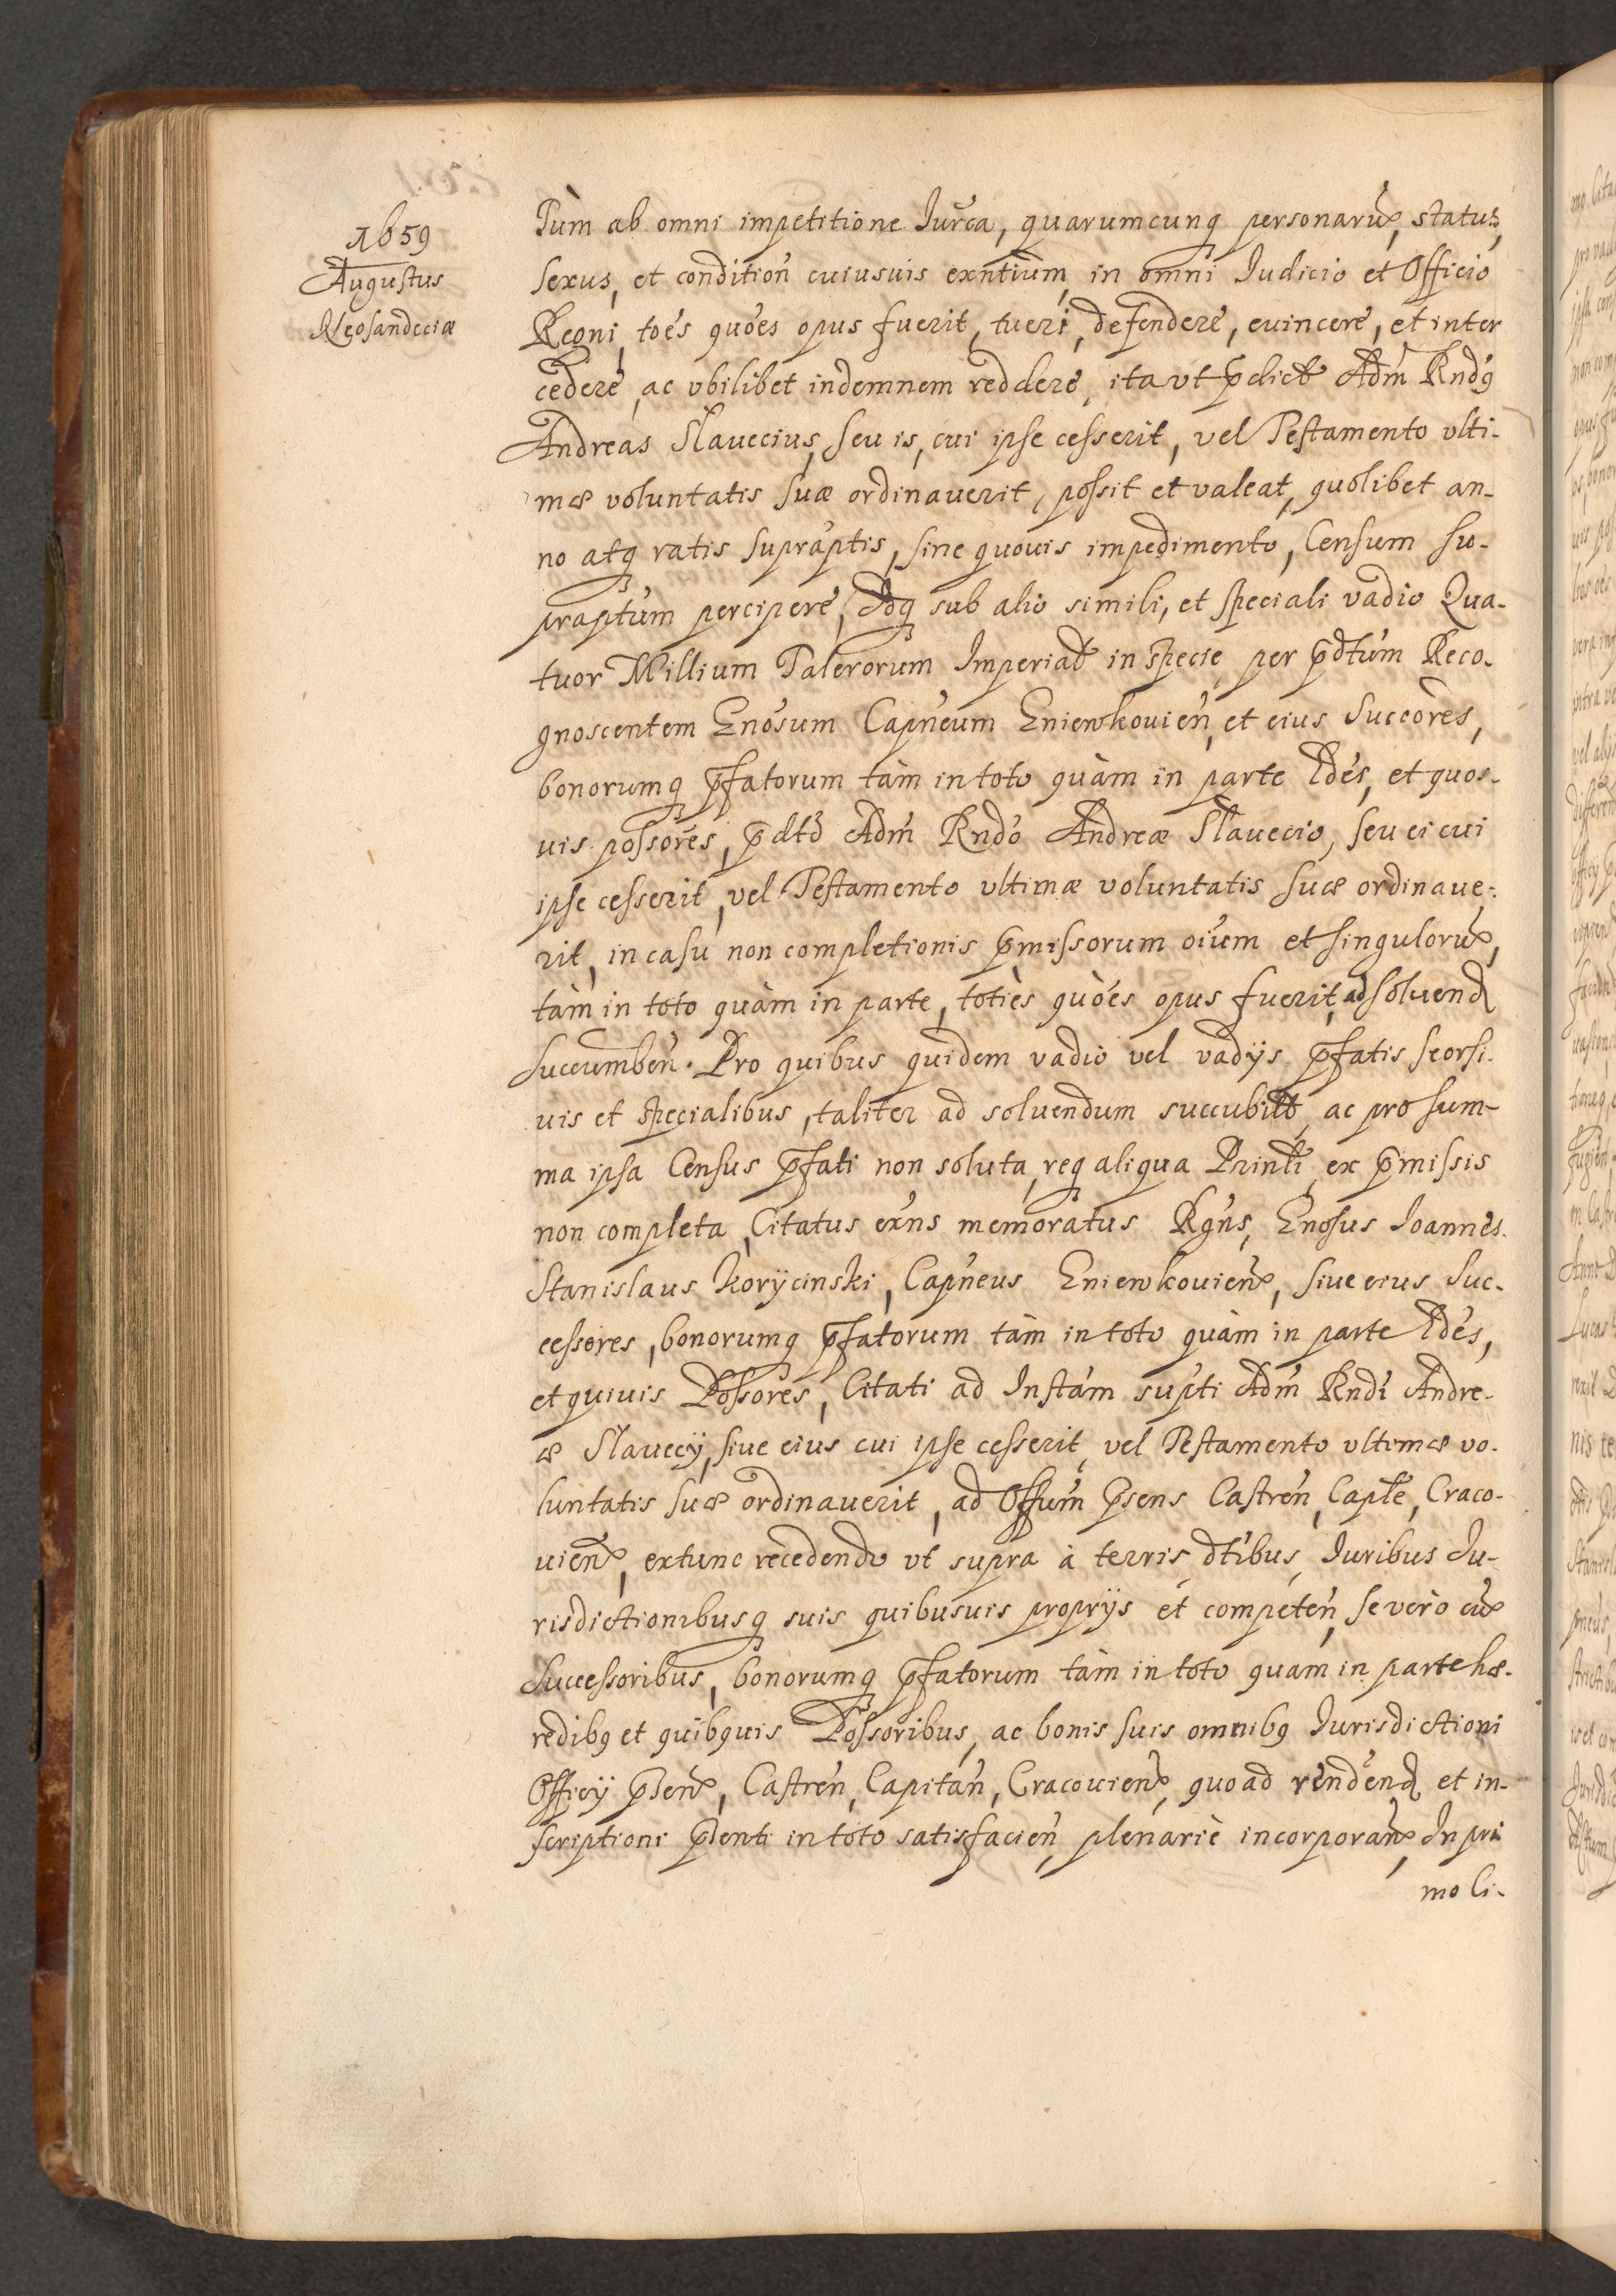 1659
Augustus
Neosandeciæ
Tùm ab omni impetitione Jur̃ca, quarumcunq personarũ, status,
sexus, et condition̄ cuiusuis exñtium, in omni Judicio et Officio
Regni, toẽs quões opus fuerit, tueri, defendere, euincere, et inter
cedere, ac vbilibet indemnem reddere, ita vt p̄dict Adm̃ Rndq
Andreas Slauecius, seu is, cui ipse cesserit, vel Testamento vlti-
mæ voluntatis suæ ordinauerit, possit et valeat, quolibet an-
no atq ratis suprap̃tis, sine quouis impedimento, Censum su-
prap̃tum percipere, Idq sub alio simili, et speciali vadio Qua-
tuor Millium Talerorum Imperial in specie, per p̄dtum Reco-
gnoscentem Gñosum Capñeum Gniewkouien̄, et eius Succõres,
bonorumq p̄fatorum tàm in toto quàm in parte Hdẽs, et quos-
uis possõres, p̄dto Adm̃ Rndo Andreæ Slauecio, seu ei cui
ipse cesserit, vel Testamento vltimæ voluntatis suæ ordinaue-
rit, in casu non completionis p̄missorum oĩum et singulorũ,
tàm in toto quàm in parte, totiès quões opus fuerit, ad soluend
succumben̄. Pro quibus quidem vadio vel vadÿs p̄fatis seorsi-
uis et specialibus, taliter ad soluendum succubitt, ac pro sum-
ma ipsa Census p̄fati non soluta, req aliqua Printi ex p̄missis
non completa, Citatus exñs memoratus Rgñs, Gñosus Joannes
Stanislaus Korÿcinski, Capñeus Gniewkouien̄, siue eius Suc-
cessores, bonorumq p̄fatorum tàm in toto quàm in parte Hdẽs,
et quiuis Possõres, Citati ad Instãm sup̃ti Adm̃ Rndi Andre-
æ Slauecÿ, siue eius cui ipse cesserit, vel Testamento vltimæ vo-
luntatis suæ ordinauerit, ad Offum p̄sens Castren̄, Capt̃le, Craco-
uien̄, extunc recedendo vt supra à terris, dtibus, Juribus Ju-
risdictionibusq suis quibusuis proprÿs et competen̄, se verò cũ
Successoribus, bonorumq p̄fatorum tàm in toto quam in parte hæ-
redibq et quibquis Possoribus, ac bonis suis omnibq Jurisdictioni
Officÿ p̄sen̄, Castren̄, Capitan̄, Cracouien̄, quo ad rendend, et in-
scriptioni p̄senti in toto satisfacien̄, plenariè incorporan̄, In pri
mo Ci-